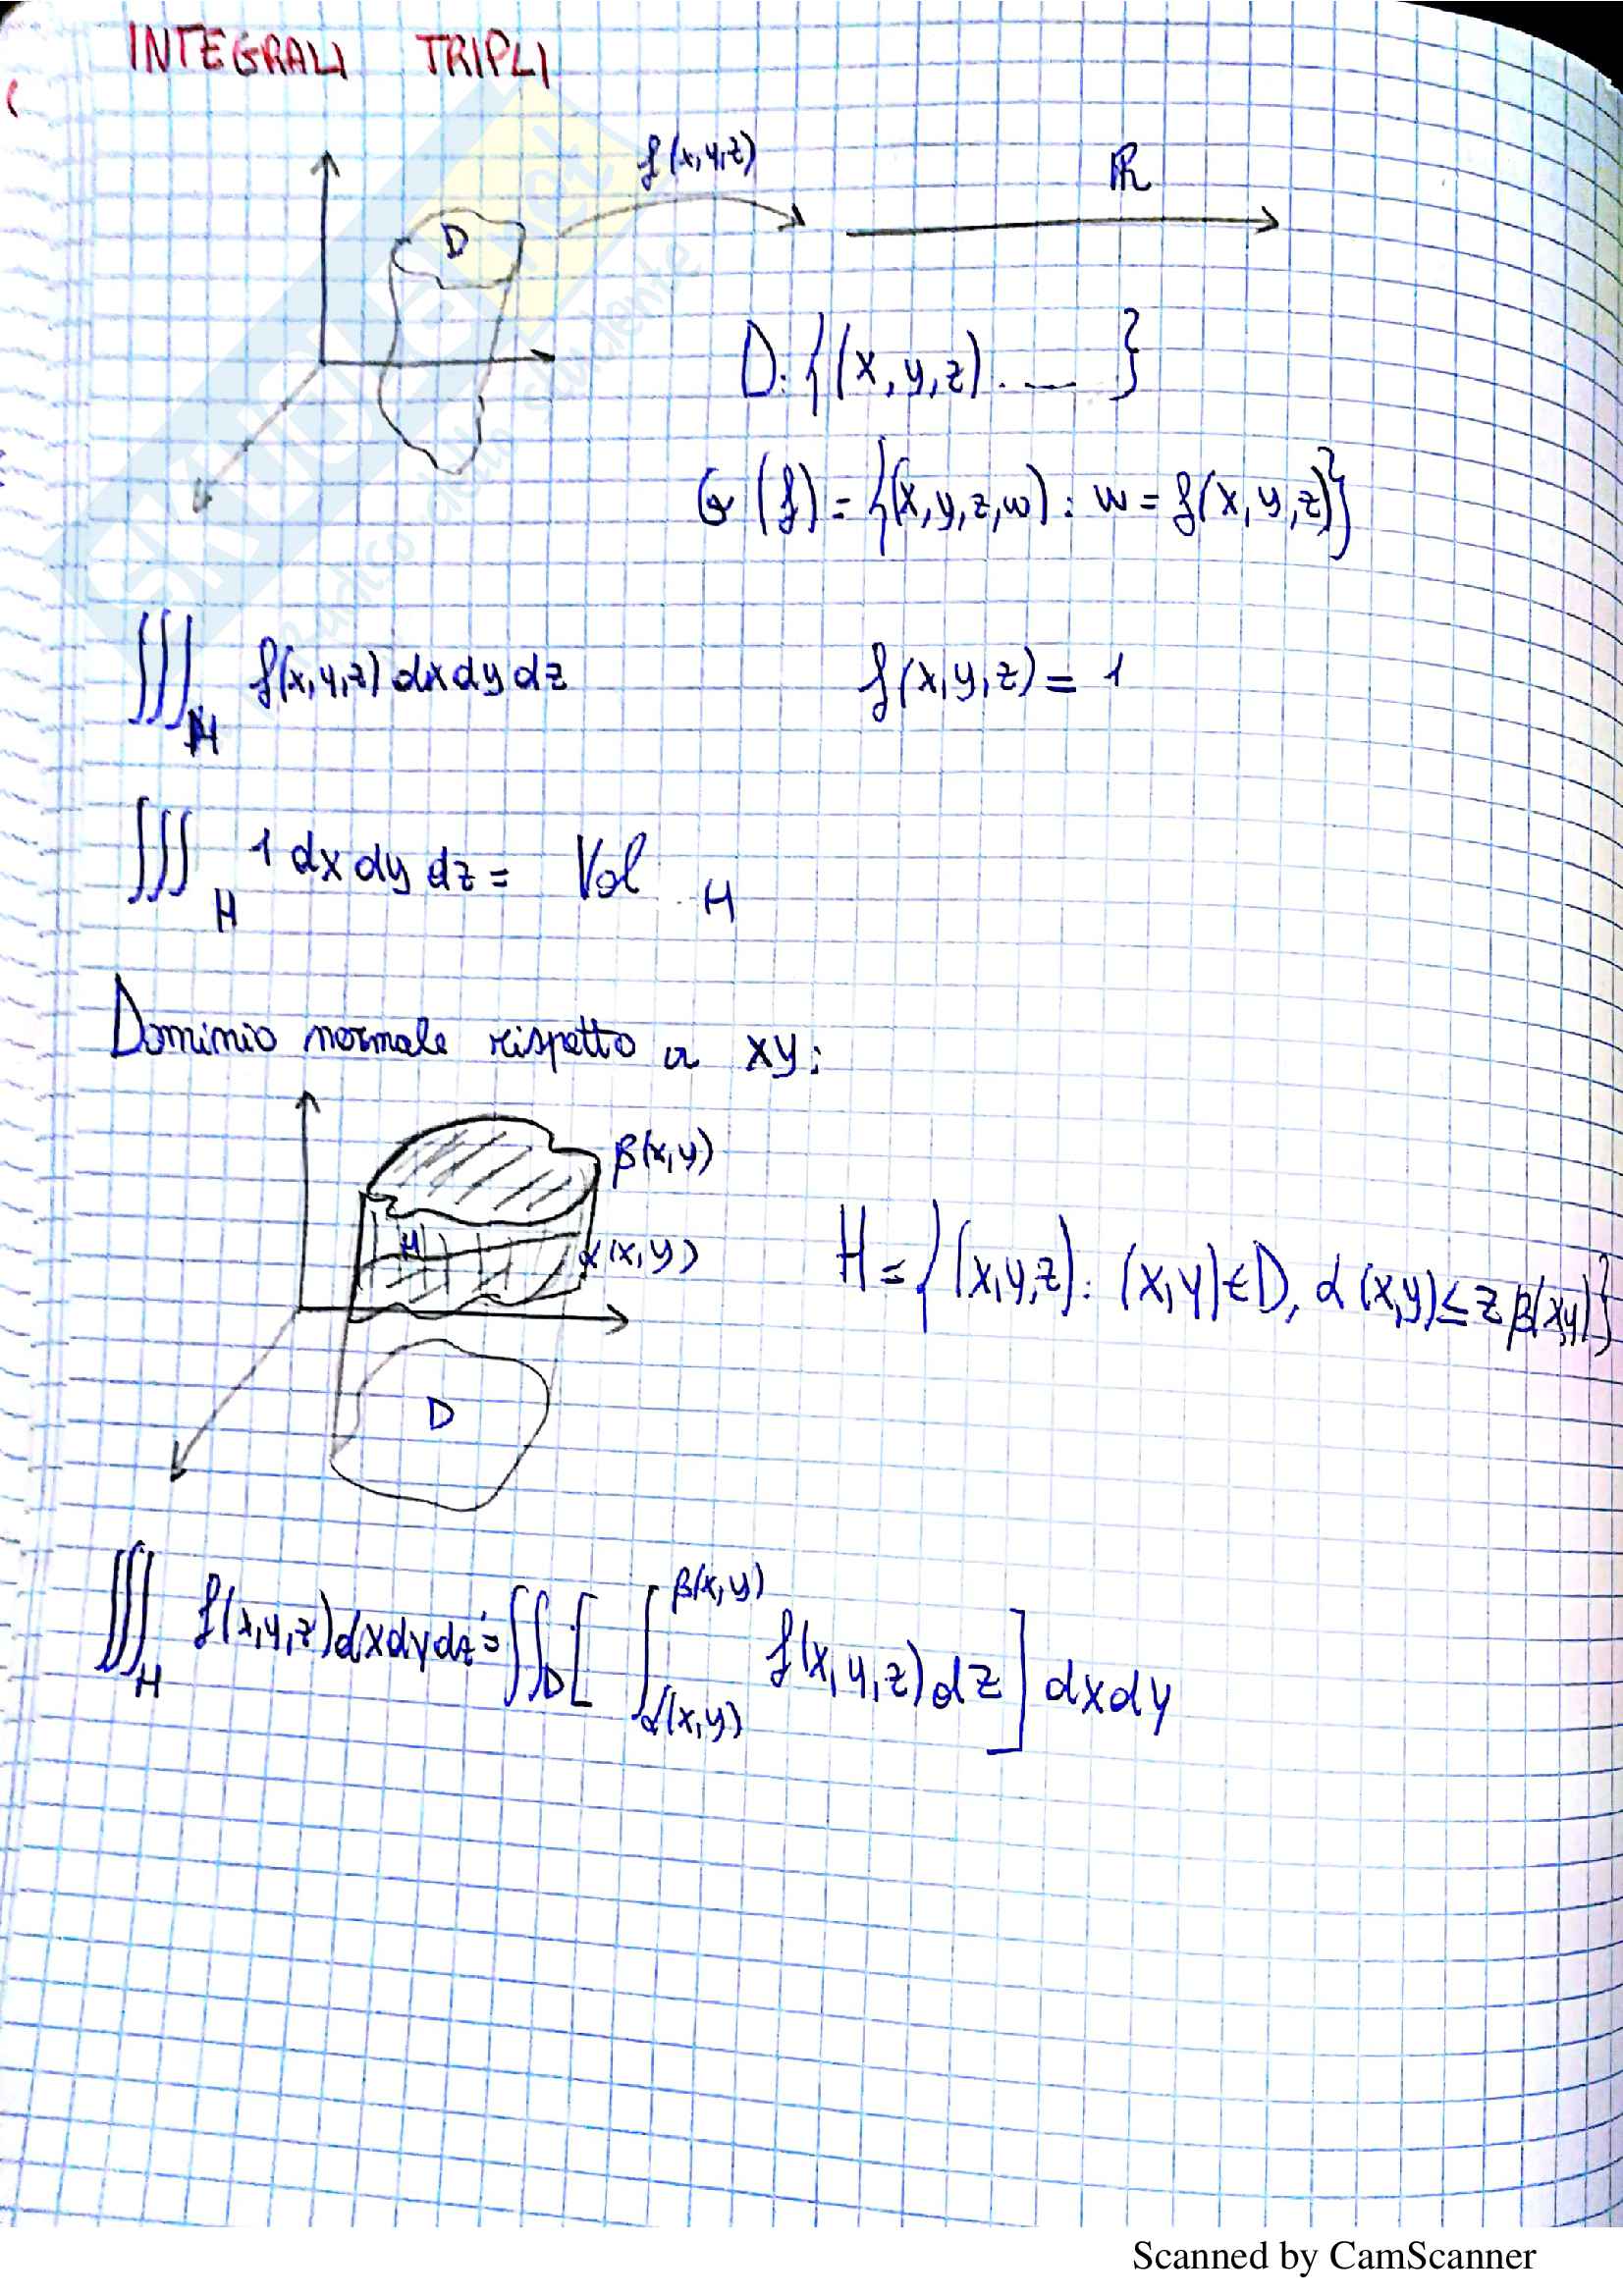 INTEGRALI TRIPLI
f(x,y,z)
ℝ
D
D: {(x,y,z). — }
Gr (f) = {(x,y,z,w) : w = f(x,y,z)}
∭_H f(x,y,z) dx dy dz
f(x,y,z) = 1
∭_H 1 dx dy dz = Vol H
Dominio normale rispetto a xy:
β(x,y)
H
α(x,y)
H = {(x,y,z): (x,y)∈D, α(x,y)≤ z β(x,y)}
D
∭_H f(x,y,z)dxdydz = ∬_D [ ∫_{α(x,y)}^{β(x,y)} f(x,y,z)dz ] dxdy
SKUOLA.net
Scanned by CamScanner